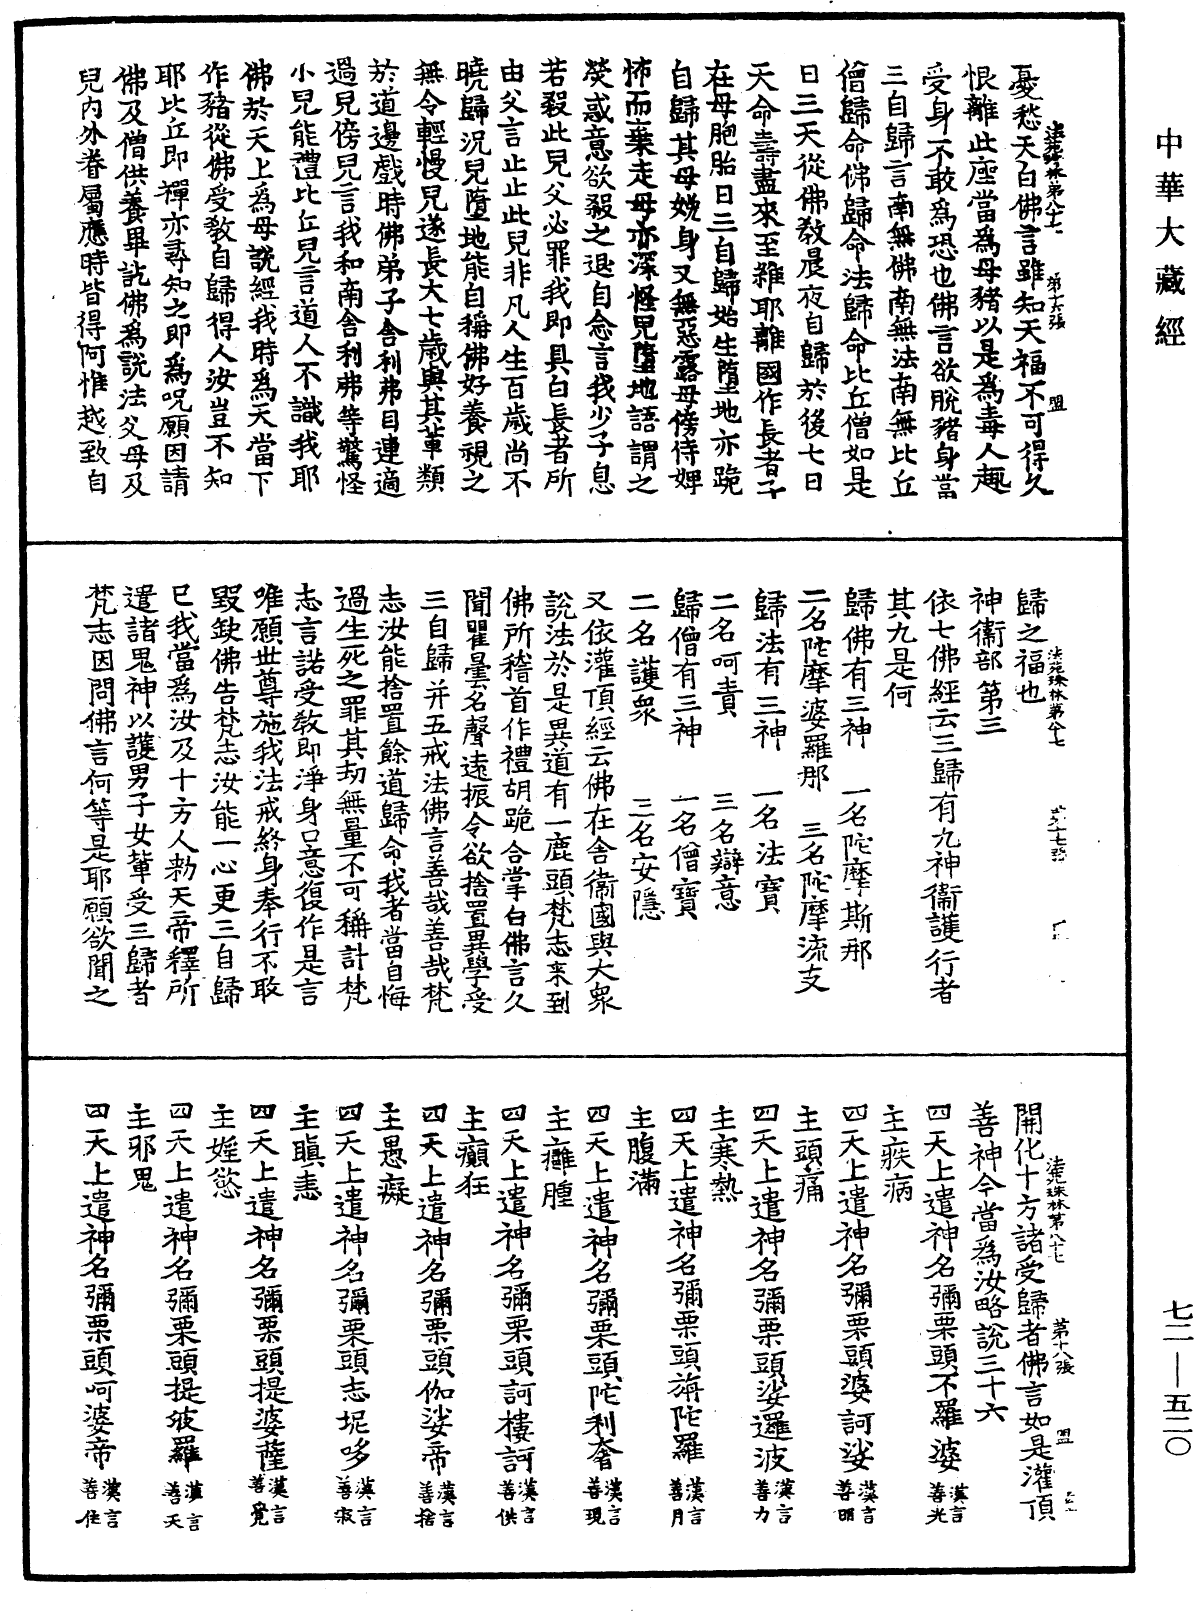 中華大藏經
法苑珠林第八十七 第十六張 盟
憂愁天白佛言雖知天福不可得久
恨離此座當為母豬以是為毒人趣
受身不敢為恐也佛言欲脫豬身當
三自歸言南無佛南無法南無比丘
僧歸命佛歸命法歸命比丘僧如是
日三天從佛教晨夜自歸於後七日
天命壽盡來至維耶離國作長者子
在母胞胎日三自歸始生墮地亦跪
自歸其母娩身又無惡露母傍侍婢
怖而棄走母亦深怪兒墮地語謂之
熒惑意欲殺之退自念言我少子息
若殺此兒父必罪我即具白長者所
由父言止止此兒非凡人生百歲尚不
曉歸況兒墮地能自稱佛好養視之
無令輕慢兒遂長大七歲與其軰類
於道邊戲時佛弟子舍利弗目連適
過兒傍兒言我和南舍利弗等驚怪
小兒能禮比丘兒言道人不識我耶
佛於天上為母說經我時為天當下
作豬從佛受教自歸得人汝豈不知
耶比丘即禪亦尋知之即為呪願因請
佛及僧供養畢訖佛為說法父母及
兒內外眷屬應時皆得阿惟越致自
法苑珠林第八十七 第十七張
歸之福也
神衛部第三
依七佛經云三歸有九神衛護行者
其九是何
歸佛有三神 一名陀摩斯那
二名陀摩婆羅那 三名陀摩流支
歸法有三神 一名法寶
二名呵責 三名辯意
歸僧有三神 一名僧寶
二名護衆 三名安隱
又依灌頂經云佛在舍衛國與大衆
說法於是異道有一鹿頭梵志来到
佛所稽首作禮胡跪合掌白佛言久
聞瞿曇名聲遠振今欲捨置異學受
三自歸并五戒法佛言善哉善哉梵
志汝能捨置餘道歸命我者當自悔
過生死之罪其劫無量不可稱計梵
志言諾受教即淨身口意復作是言
唯願世尊施我法戒終身奉行不敢
毀缺佛告梵志汝能一心更三自歸
已我當為汝及十方人勑天帝釋所
遣諸鬼神以護男子女軰受三歸者
梵志因問佛言何等是耶願欲聞之
法苑珠林第八十七 第十八張 盟
開化十方諸受歸者佛言如是灌頂
善神今當為汝略說三十六
四天上遣神名彌栗頭不羅婆漢言善光
主疾病
四天上遣神名彌栗頭婆訶娑漢言善明
主頭痛
四天上遣神名彌栗頭娑邏波漢言善力
主寒熱
四天上遣神名彌栗頭旃陀羅漢言善月
主腹滿
四天上遣神名彌栗頭陀利奢漢言善現
主癰腫
四天上遣神名彌栗頭訶樓訶漢言善供
主癲狂
四天上遣神名彌栗頭伽娑帝漢言善捨
主愚癡
四天上遣神名彌栗頭志坭哆漢言善寂
主瞋恚
四天上遣神名彌栗頭提婆薩漢言善覺
主婬慾
四天上遣神名彌栗頭提波羅漢言善天
主邪鬼
四天上遣神名彌栗頭呵婆帝漢言善住
七二—五二〇